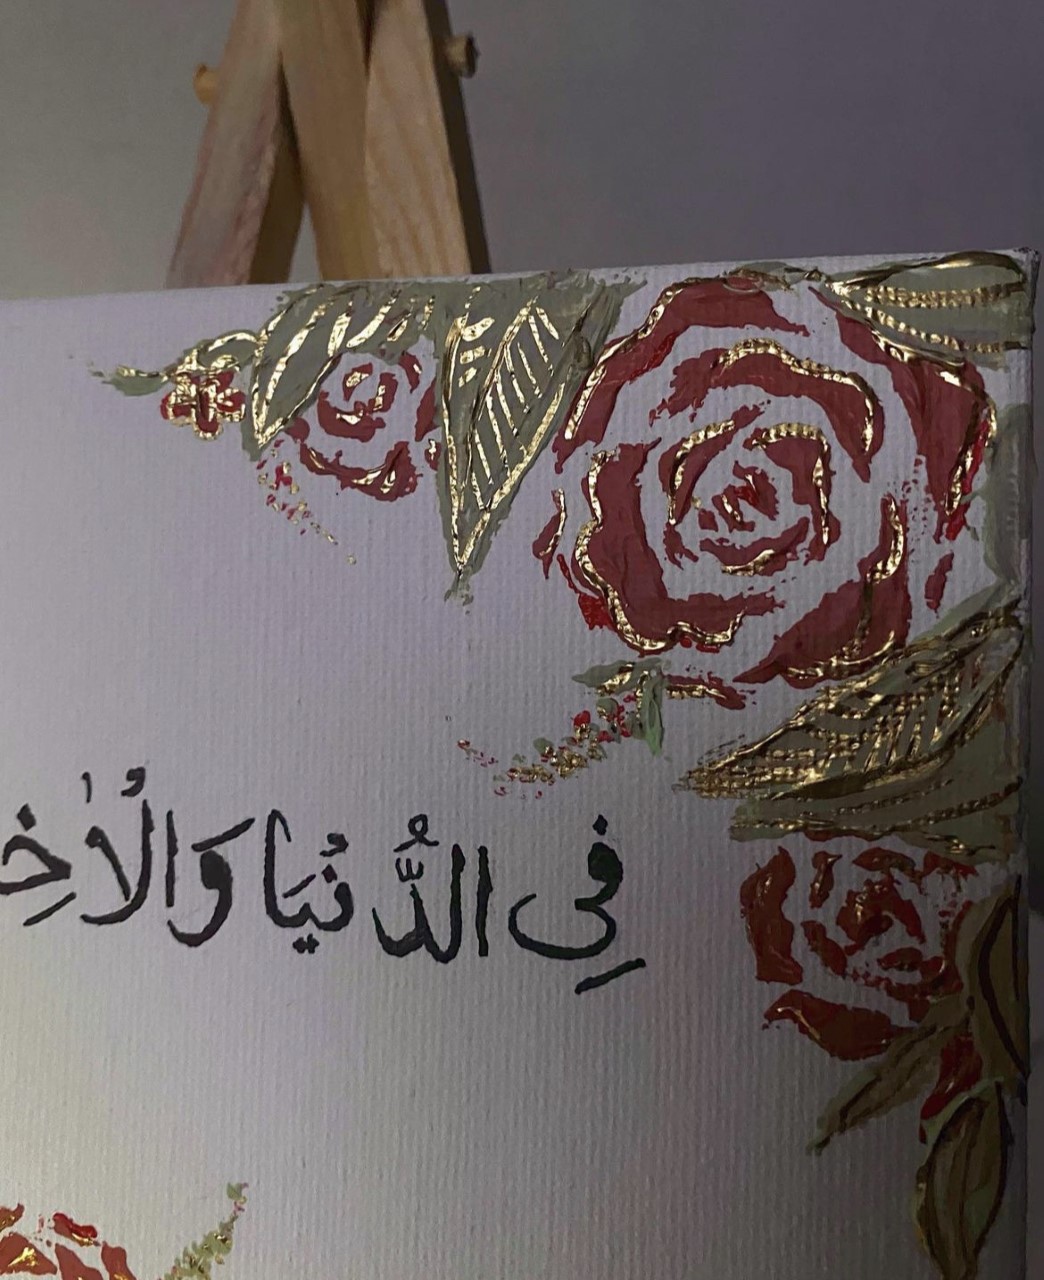 فِى الدُّنْيَا وَالْاٰخِ